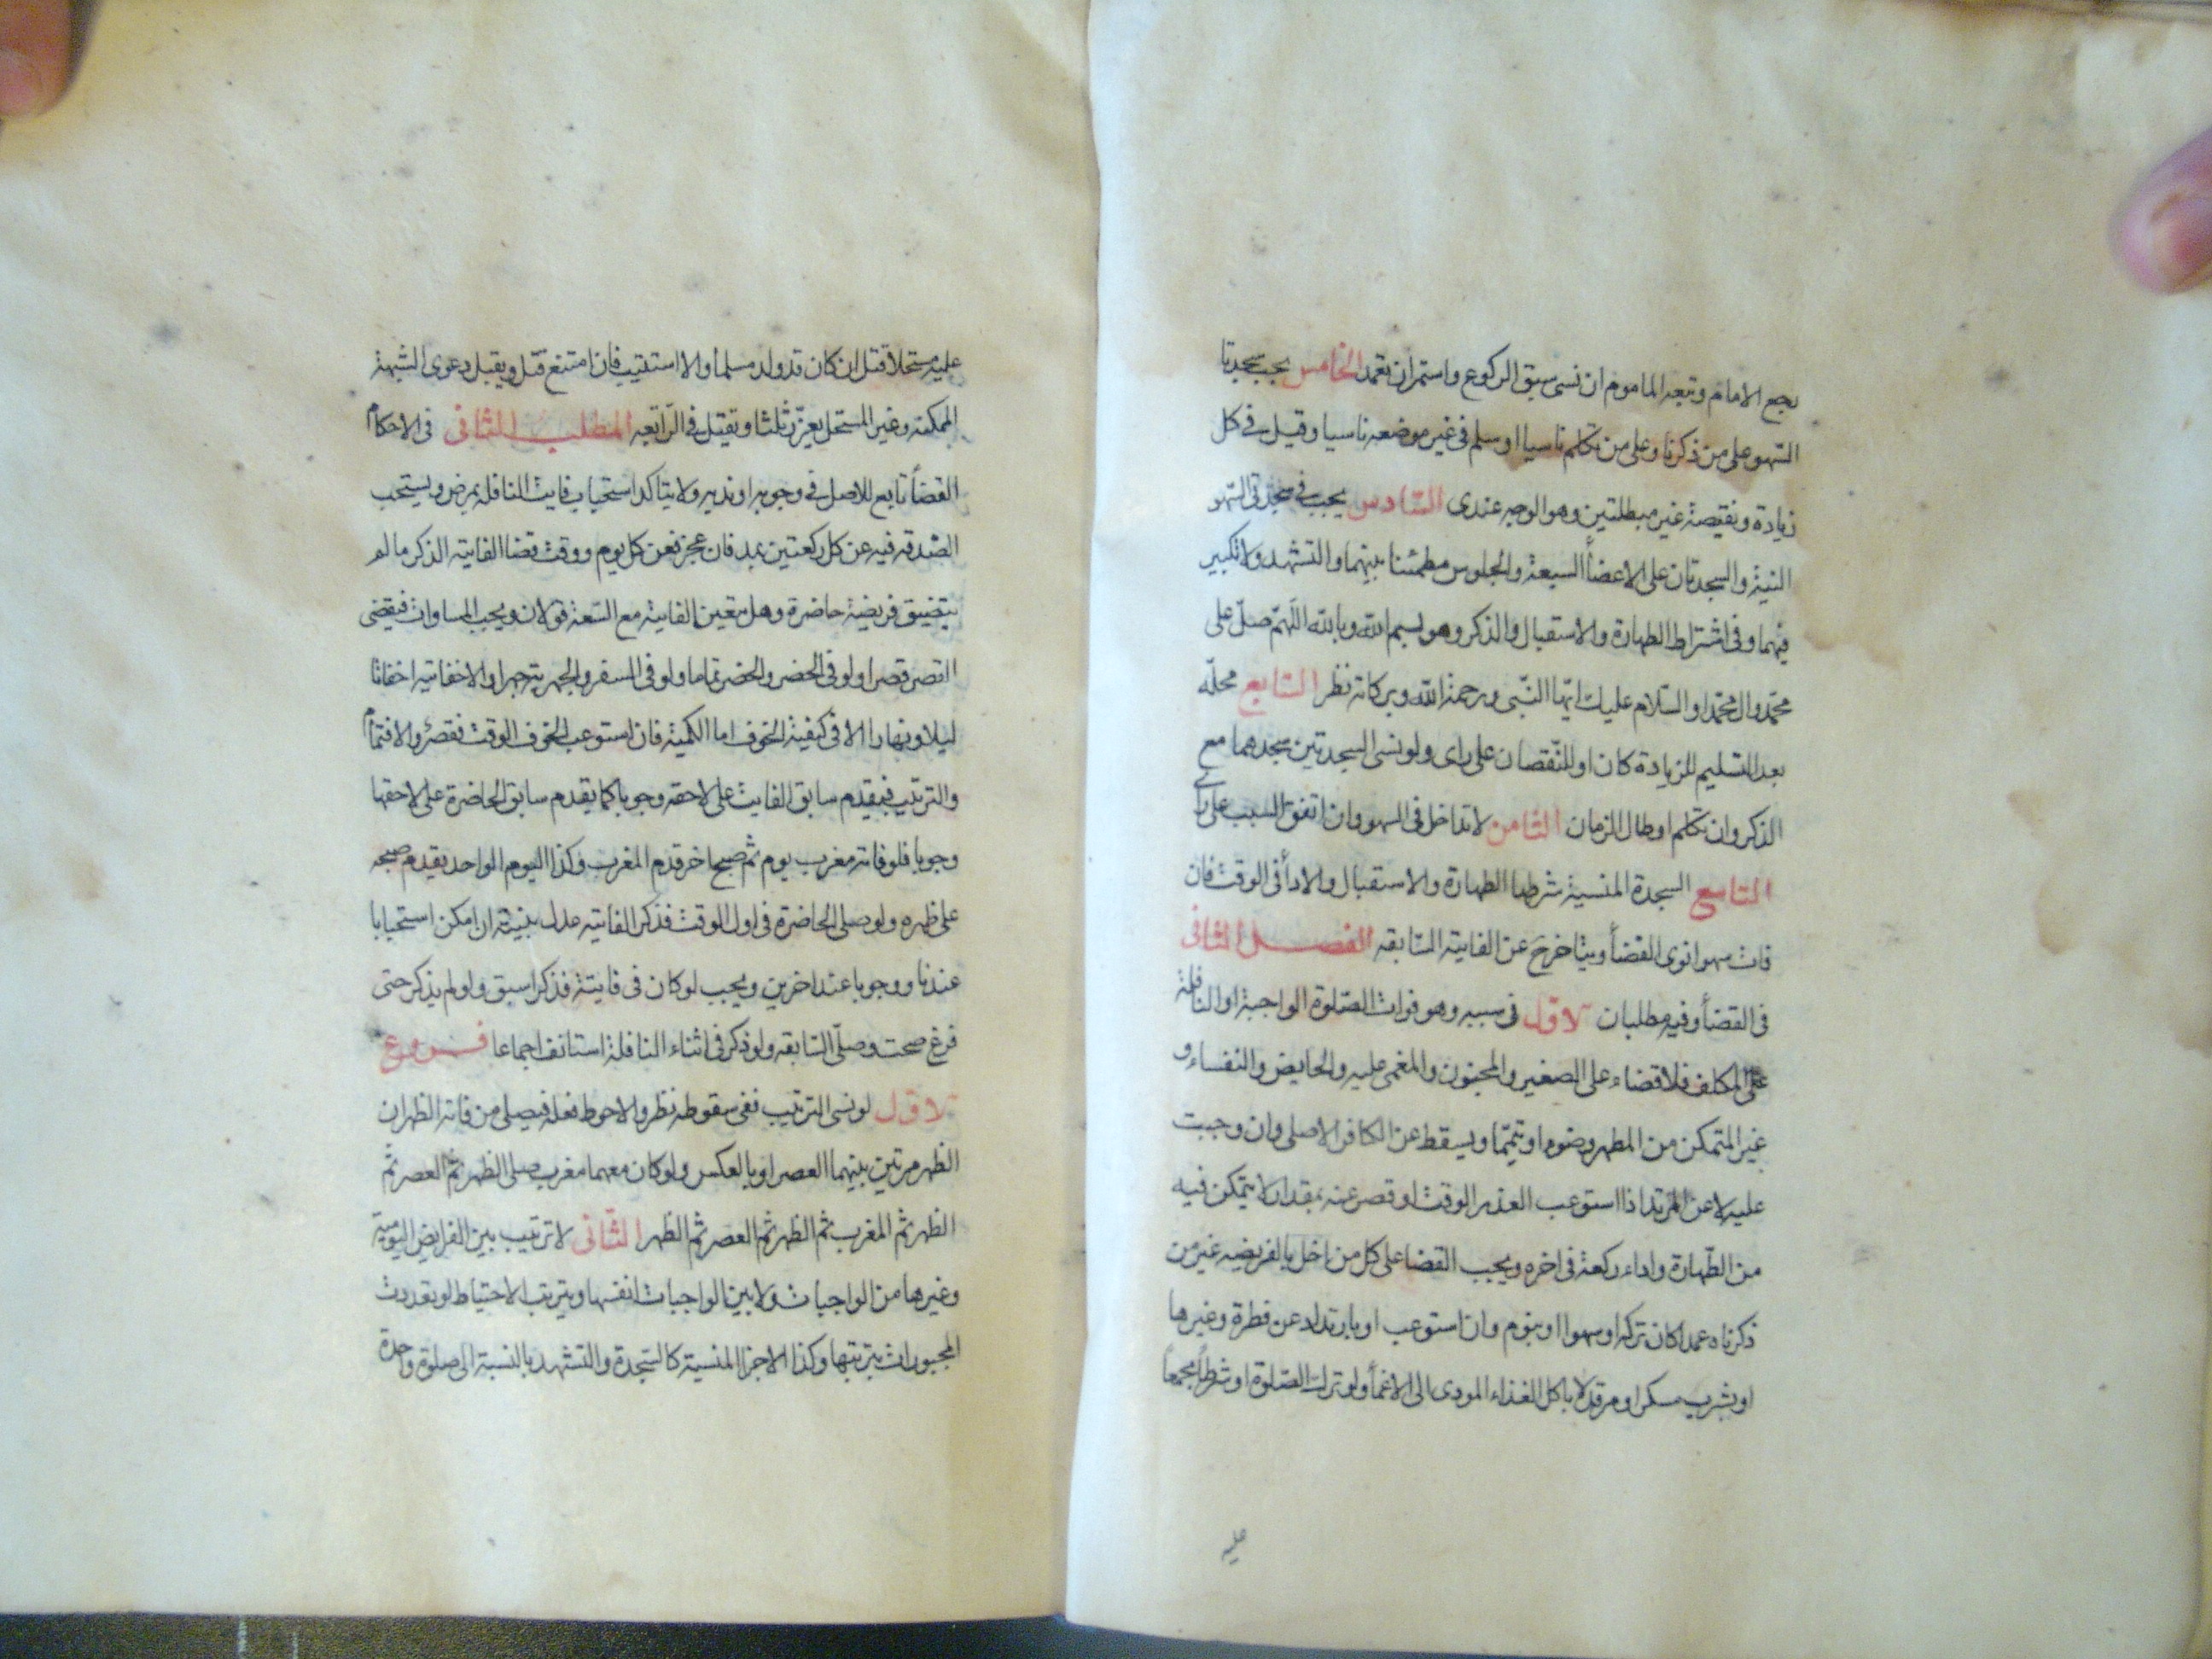 يرجع الامام ويتبعه الماموم ان نسى سبق الركوع واستمر ان تعمد الخامس يجب سجدتا
السهو على من ذكرنا وعلى من تكلم ناسيا او سلم فى غير موضعه ناسيا وقيل فى كل
زيادة ونقيصة غير مبطلتين وهو الوجه عندى السادس يجب فى سجدتى السهو
النية والسجدتان على الاعضأ السبعة والجلوس مطمئنا بينهما والتشهد ولا تكبير
فيهما وفى اشتراط الطهارة والاستقبال والذكر وهو بسم الله وبالله اللهمّ صلّ على
محمّد وال محمّد او السّلام عليك ايّها النّبى ورحمة الله وبركاته نظر السّابع محلّه
بعد التسليم للزيادة كان او للنّقصان على راى ولو نسى السجدتين سجدهما مع
الذكر وان تكلم او طال الزمان الثامن لا تداخل فى السهو وان اتفق السبب على راى
التاسع السجدة المنسية شرطها الطهارة والاستقبال والادأ فى الوقت فان
فات سهوا نوى القضأ ويتاخر عن الفايته السّابقه الفصل الثانى
فى القضأ وفيه مطلبان الاول فى سببه وهو فوات الصّلوة الواجبة او النافلة
على المكلف فلا قضاء على الصغير والمجنون والمغمى عليه والحايض والنفساء و
غير المتمكن من المطهر وضوءا وتيمّما ويسقط عن الكافر الاصلى وان وجبت
عليه لا عن المرتد اذا استوعب العذر الوقت او قصر عنه بمقدار لا يتمكن فيه
من الطّهارة واداء ركعة فى اخره ويجب القضا على كل من اخل بالفريضه غير من
ذكرناه عمدا كان تركه او سهوا او بنوم وان استوعب او بارتداد عن فطرة وغيرها
او بشرب مسكر او مرقد لا باكل الغذاء المودى الى الاغمأ ولو ترك الصّلوة او شرطا مجمعا
عليه
عليه مستحلا قتل ان كان قد ولد مسلما والا استتيب فان امتنع قتل ويقبل دعوى الشبهة
الممكنة وغير المستحل يعزّر ثلثا ويقتل فى الرّابعه المطلب الثانى فى الاحكام
القضأ تابع للاصل فى وجوبه او ندبه ولا يتاكد استحباب فايت النافله بمرض ويستحب
الصّدقه فيه عن كل ركعتين بمد فان عجز فعن كل يوم ووقت قضا الفايته الذكر ما لم
يتضيق فريضة حاضرة وهل يتعين الفايته مع السّعة قولان ويجب المساواة فيقضى
القصر قصرا ولو فى الحضر والحضر تماما ولو فى السفر والجهرية جهرا والاخفاتيه اخفاتا
ليلا ونهارا الا فى كيفية الخوف اما الكمية فان استوعب الخوف الوقت فقصر والا فتمام
والترتيب فيقدم سابق الفايت على لاحقه وجوبا كما يقدم سابق الحاضرة على لاحقها
وجوبا فلو فاته مغرب يوم ثم صبح اخر قدم المغرب وكذا اليوم الواحد يقدم صبحه
على ظهره ولو صلى الحاضرة فى اول الوقت فذكر الفايته عدل بنيته ان امكن استحبابا
عندنا ووجوبا عند اخرين ويجب لو كان فى فايتة فذكر اسبق ولو لم يذكر حتى
فرغ صحت وصلّى السّابقه ولو ذكر فى اثناء النافلة استانف اجماعا فروع
الاول لو نسى الترتيب ففى سقوطه نظر والاحوط فعله فيصلى من فاته الظهران
الظهر مرتين بينهما العصر او بالعكس ولو كان معهما مغرب صلى الظهر ثم العصر ثم
الظهر ثم المغرب ثم الظهر ثم العصر ثم الظهر الثّانى لا ترتيب بين الفرايض اليومية
وغيرها من الواجبات ولا بين الواجبات انفسها ويترتب الاحتياط لو تعددت
المجبورات بترتبها وكذا الاجزا المنسية كالسّجدة والتشهد بالنسبة الى صلوة واحدة